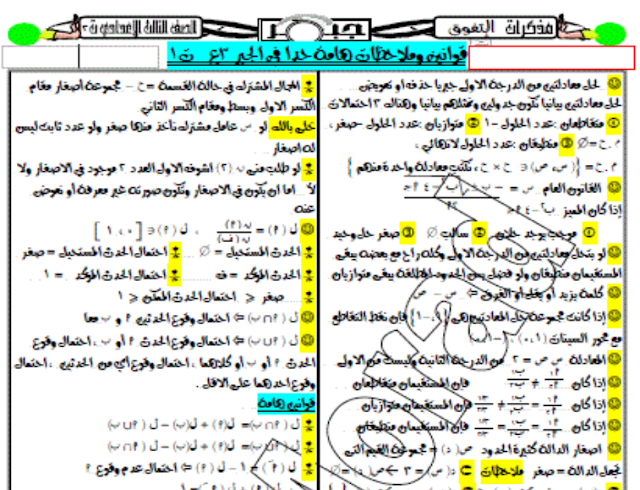 مذكرات التفوق
جبـــر
الصف الثالث الإعدادي ت٢
قوانين وملاحظات هامة جدا في الجبر ٣ع ت١
لحل معادلتين من الدرجة الاولى جبريا حذف او تعويض
لحل معادلتين بيانيا نكون جدولين ونمثلهم بيانيا وهناك ٣ احتمالات
① متقاطعان :عدد الحلول = ١ ② متوازيان :عدد الحلول = صفر ،
م . ح = ∅ ③ منطبقان :عدد الحلول لانهائي ،
م . ح = { (س ، ص) ∋ ح × ح ، نكتب معادلة واحدة منهم }
القانون العام س =
إذا كان المميز ب٢ - ٤ ٢ حـ
① موجب يوجد حلان ② سالب ∅ ③ صفر حل وحيد
لو بتحل معادلتين من الدرجة الاولى وكله راح مع بعضه يبقى
المستقيمان منطبقان ولو فضل بس الحدود المطلقة يبقى متوازيان
كلمة يزيد او يقل أو الفرق ⇐ س - ص
إذا كانت مجموعة حل المعادلتين هي {٩، -١} فإن نقط التقاطع
مع محور السينات (٩ ، ٠) (-١ ، ٠)
المعادلة س ص = ٢ من الدرجة الثانية وليست من الاولى
إذا كان فإن المستقيمان متقاطعان
إذا كان فإن المستقيمان متوازيان
إذا كان فإن المستقيمان منطبقان
اصفار الدالة كثيرة الحدود ص( د) = مجموعة القيم التي
تجعل الدالة = صفر ملاحظات د( س) = ٣ ← ص( د) = ∅
المجال المشترك في حالة القسمة = ح - مجموعة أصفار مقام
الكسر الاول وبسط ومقام الكسر الثاني
خلي بالك لو س عامل مشترك نأخذ منها صفر ولو عدد ثابت ليس
له اصفار
لو طلب مني ن (٢) اشوف الاول العدد ٢ موجود في الاصفار ولا
لأ اما ان يكون في الاصفار وتكون صورته غير معرفة أو نعوض
عنه
ل ( ٢) = ، ل ( ٢) ∋ [ ٠ ، ١ ]
الحدث المستحيل = ∅ احتمال الحدث المستحيل = صفر
الحدث المؤكد = ف احتمال الحدث المؤكد = ١
صفر ≤ احتمال الحدث الممكن ≤ ١
ل ( ٢ ∩ ب) ⇐ احتمال وقوع الحدثين ٢ و ب معا
ل ( ٢ ∪ ب) ⇐ احتمال وقوع الحدث ٢ أو ب ، احتمال وقوع
الحدث ٢ أو ب أو كلاهما ، احتمال وقوع أي من الحدثين ، احتمال
وقوع احدهما على الاقل
قوانين هامة
ل ( ٢ ∩ ب) = ل( ٢) + ل( ب) - ل ( ٢ ∪ ب)
ل ( ٢ ∪ ب) = ل( ٢) + ل( ب) - ل ( ٢ ∩ ب)
ل ( ٢َ) = ١ - ل ( ٢) ⇐ احتمال عدم وقوع ٢